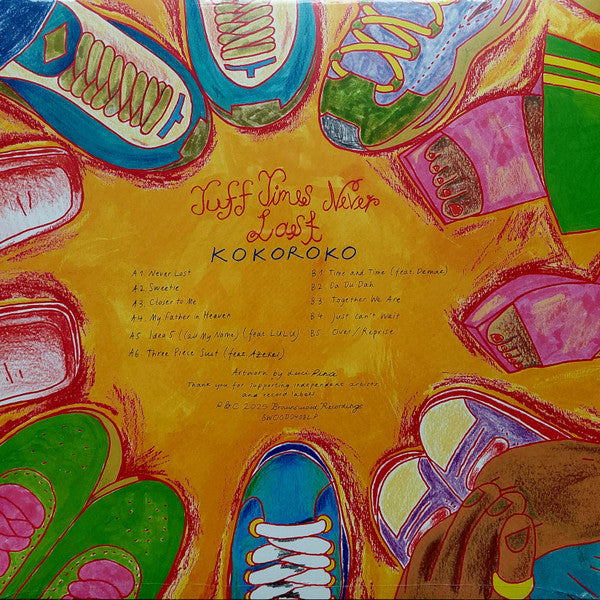 Tuff Times Never
Last
KOKOROKO
A1 Never Lost
A2. Sweetie
A3. Closer to Me
A4. My Father in Heaven
A5. Idea 5 (Call My Name) (feat LULU)
A6. Three Piece Suit (feat Azekel)
B1 Time and Time (feat. Demae)
B2. Da Du Dah
B3 Together We Are
B4 Just Can't Wait
B5 Over/Reprise
Artwork by Luci Pina
Thank you for supporting independent artists
and record labels
℗&© 2025 Brownswood Recordings